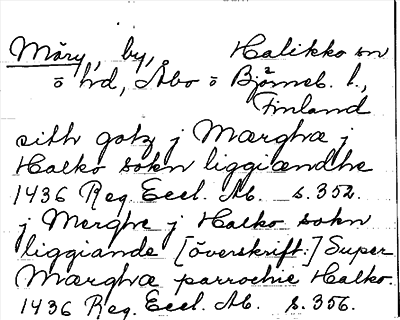 Märy, by, Halikko sn
ö hd, Åbo o Björneb. l.,
Finland
sith gotz j Mærghæ j
Halko sokn liggiændhe
1436 Reg. Eccl. Ab. s. 352.
j Merghe j Halko sokn
liggiande [överskrift:] Super
Mærghæ parrochie Halko.
1436 Reg. Eccl. Ab. s. 356.